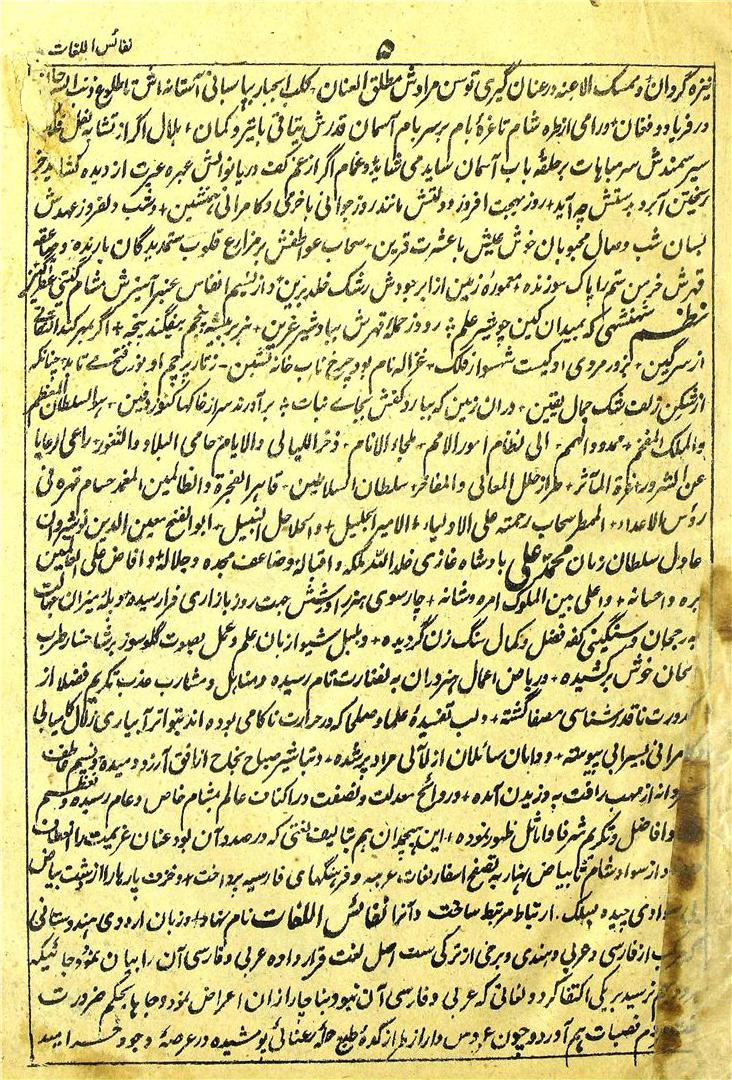 نفائس اللغات
۵
نیزه گردان و ممسک الاعنه در عنان گیری توسن مرادش مطلق العنان کلب الجبار بپاسبانی آستانه اش تا طلوع ذنب السرحان
در فریاد و فغان و رامی از طره شام تا غرهٔ بام بر سر بام آسمان قدرش یتاقی با تیر و کمان + هلال اگر از تشابه نعل
سیر سمندش سر مباهات بر حلقهٔ باب آسمان ساید می شاید و غمام اگر از غم کف دریا نوالش عبره عبرت از دیده کشاید بجز
ریختن آبرو بدستش چه آید + روز بهجت افروز دولتش مانند روز جوانی با خرمی و کامرانی همنشین + و شب دلفروز عهدش
بسان شب وصال محبوبان خوش عیش با عشرت قرین + سحاب عواطفش بر مزارع قلوب ستمدیدگان بارنده و صاعقه
قهرش خرمن ستم را پاک سوزنده + معمورهٔ زمین از ابر جودش رشک خلد برین و از نسیم انفاس عنبر آمیزش مشام گیتی عطرآگین
نظم شهنشهی که بمیدان کین چو شیر علم + رود ز حملهٔ قهرش بباد شیر عرین + هزبر بیشه پنجم بیفگند پنجه + اگر بمهر کند التفات
از سر کین + بزور مروی او کیست شهسوار فلک + غزاله نام بود چرخ ناب خانه نشین - ز تار پرچم او نور فتح می تابد چنانکه
از شکن زلف تنک جمال یقین + دران زمین که ببارد کفش بجای نبات + برآورند سر از خاکها کنوز دفین + هو السلطان المعظم
والملک المفخم + ممدود الهمم الی نظام امور الامم + ملجاء الانام + ذخر اللیالی والایام حامی البلاد والثغور + راعی الرعایا
عن الشرور + غرة المآثر + طراز حلل المعالی والمفاخر + سلطان السلاطین + قاهر الفجرة والظالمین المغمد حسام قهره فی
رؤس الاعداء + الممطر سحاب رحمته علی الاولیاء + الامیر الجلیل + والحلاحل النبیل + ابوالفتح معین الدین نوشیروان
عادل سلطان زمان محمد علی بادشاه غازی خلد الله ملکه و اقباله و ضاعف مجده و جلاله و افاض علی العالمین
بره و احسانه + و اعلی بین الملوک امره و شانه + چارسوی هنر را در شش جهت روز بازاری فرا رسیده + و پلهٔ میزان جهالت
به رجحان و سنگینی کفه فضل و کمال سنگ زن گردیده + و بلبل شیوا زبان علم و عمل بصوت گلوسوز بر شاخسار طرب
الحان خوش برکشیده + و ریاض اعمال هنروران به نضارت تام رسیده و مناهل و مشارب عذب تکریم فضلا از
کدورت ناقدرشناسی مصفا گشته + و لب تفسیدهٔ علما و صلحا که در حرارت ناکامی بوده اند بتواتر آبیاری زلال کامیابی
و کامرانی بسیرابی پیوسته + و دامان سائلان از لآلی مراد پر شده + و تباشیر صباح نجاح از افق آرزو دمیده و نسیم عاطفت
خسروانه از مهب رأفت به وزیدن آمده + و روائح معدلت و نصفت در اکناف عالم بمشام خاص و عام رسیده و تعظیم
و افاضل و تکریم شرفا و اماثل ظهور نموده + این هیچمدان هم تالیف لغتی که در صدد آن بود عنان عزیمت را انعطاف
داد از سواد شام تا بیاض نهار به تصفح اسفار لغات عربیه و فرهنگهای فارسیه پرداخت + و خزف پارها را از پشت بیاض
سوادی چیده بسلک ارتباط مرتبط ساخت و آنرا نفائس اللغات نام نهاد + و زبان اردوی هندوستانی
که مرکب از فارسی و عربی و هندی و برخی از ترکی ست اصل لغت قرار داده عربی و فارسی آن را بیان نمود و جائیکه
بهر دو نرسید بر یکی اکتفا کرد و لغاتی که عربی و فارسی آن نبود بناچار ازان اعراض نمود و جا بجا بحکم ضرورت
قصبات هم آورد و چون عروس دار از طراز کدهٔ طبع حلهٔ رعنائی پوشیده در عرصهٔ وجود خرامید